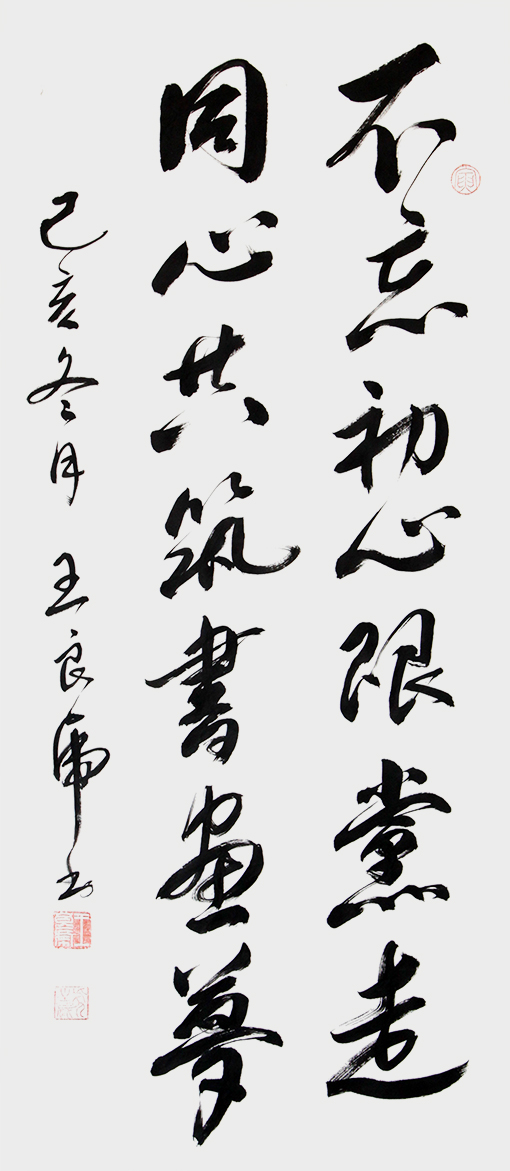 不忘初心限黨走
同心共筑書畫夢
己亥冬月 王良虎书